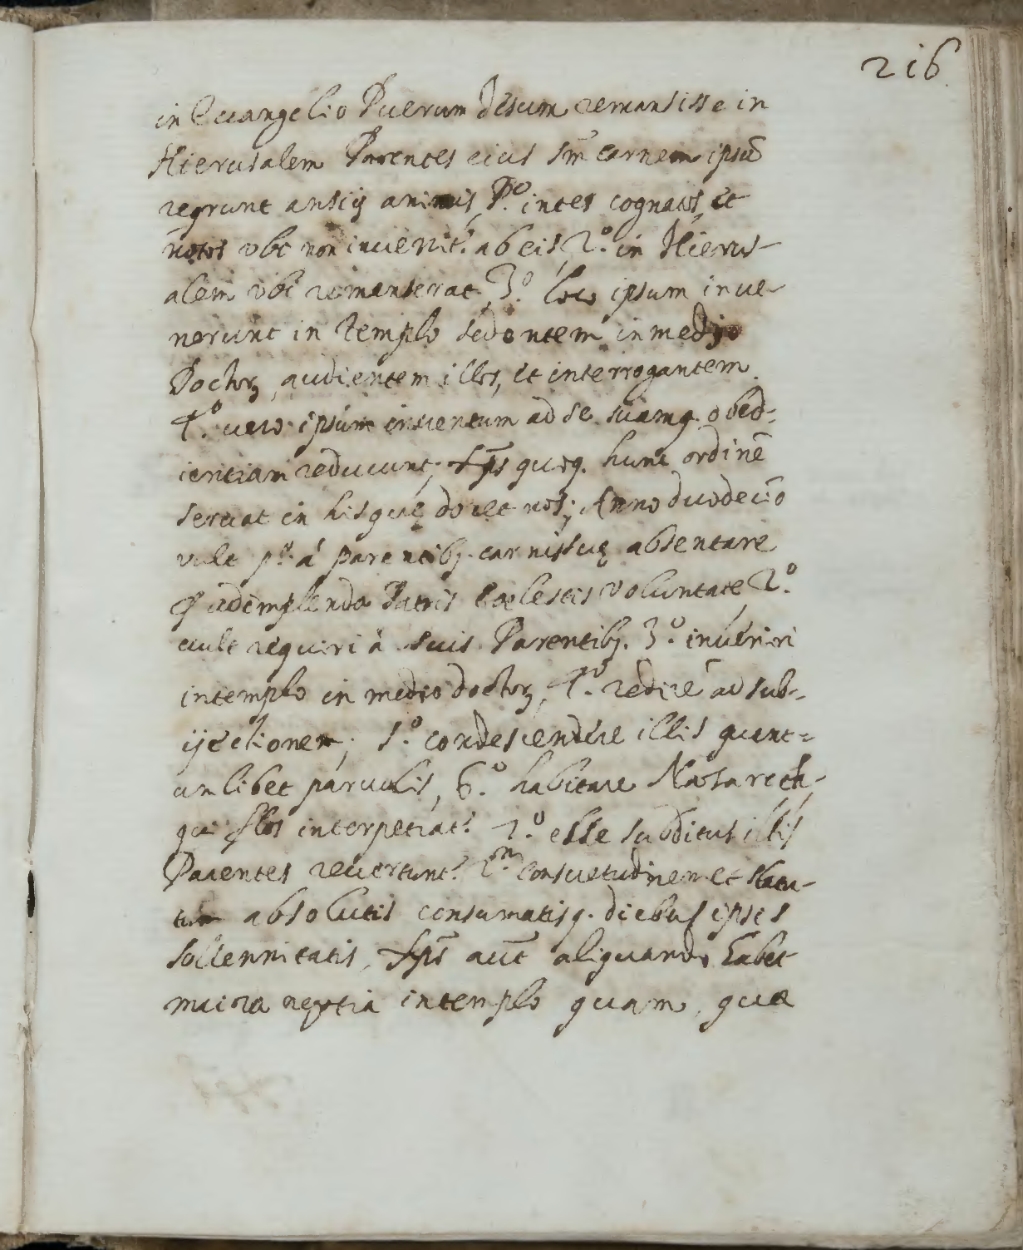 216
in Euangelio Puerum Jesum remansisse in
Hierusalem Parentes eius sm̄ carnem ipsū
reqrunt ansijs animis, P.º inter cognatos et
notos vbi non inuenit.r ab eis, 2.º in Hierus-
alem vbi remanserat, 3.º loco ipsum inue-
nerunt in Templo sedentem in medio
Doctoꝝ, audientem illos, et interrogantem.
4.º uero ipsum inuentum ad se suamq. obed-
ientiam reducunt; Xp̄s quoq. hunc ordinē
seruat in his quę docet nos; Anno duodecīo
vult p.º á parentibꝫ carnis suę absentare
ꝓ adimplenda Patris Coelestis voluntate, 2.º
uult requiri á suis Parentibꝫ. 3.º inueniri
in templo in medio doctoꝝ, 4.º redire ad sub-
ijectionem; 5.º condescendere illis quant=
umlibet paruulis, 6.º habitare Nasareth,
qui flos interpetrat.r 7.º esse subditus illis
Parentes reuertunt.r 2.m consuetudinem et statu-
tum absolutis consumatisq. diebus ipsis
sollennitatis, Xp̄s aut̄ aliquando habet
maiora negotia in templo quam, quæ